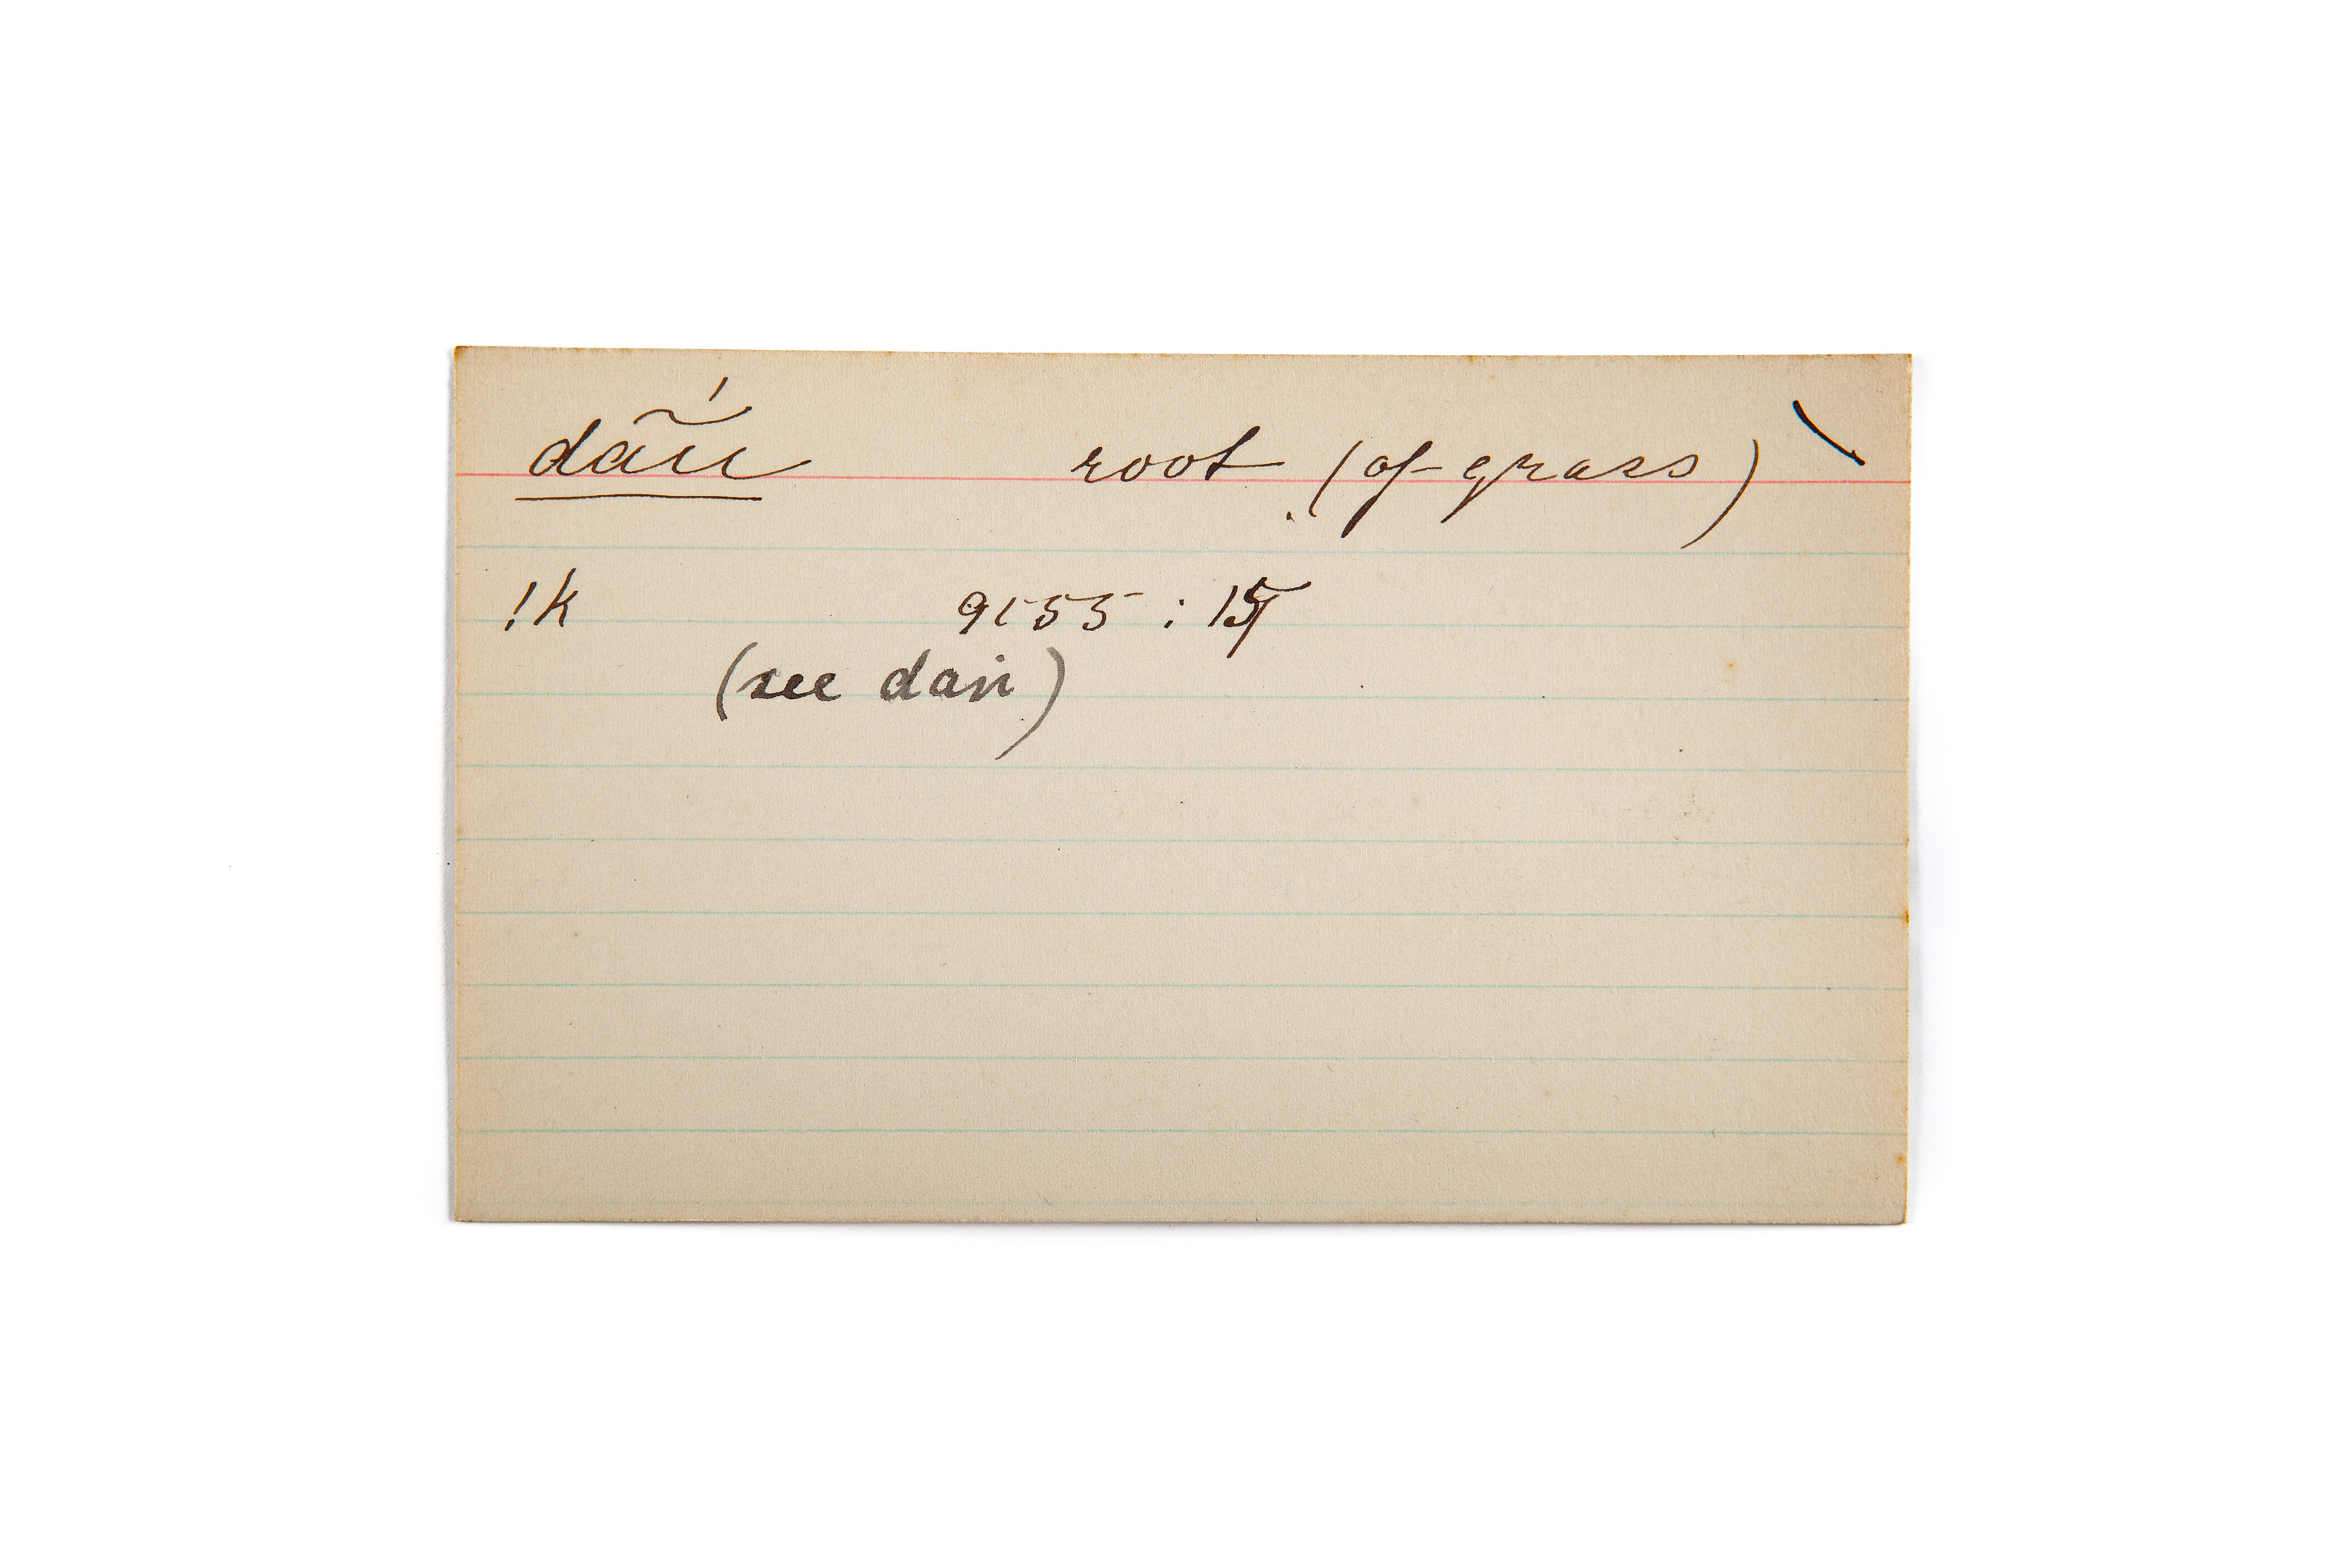 dãṅ́ root (of grass)
!k 9155 : 15
(see daṅ)